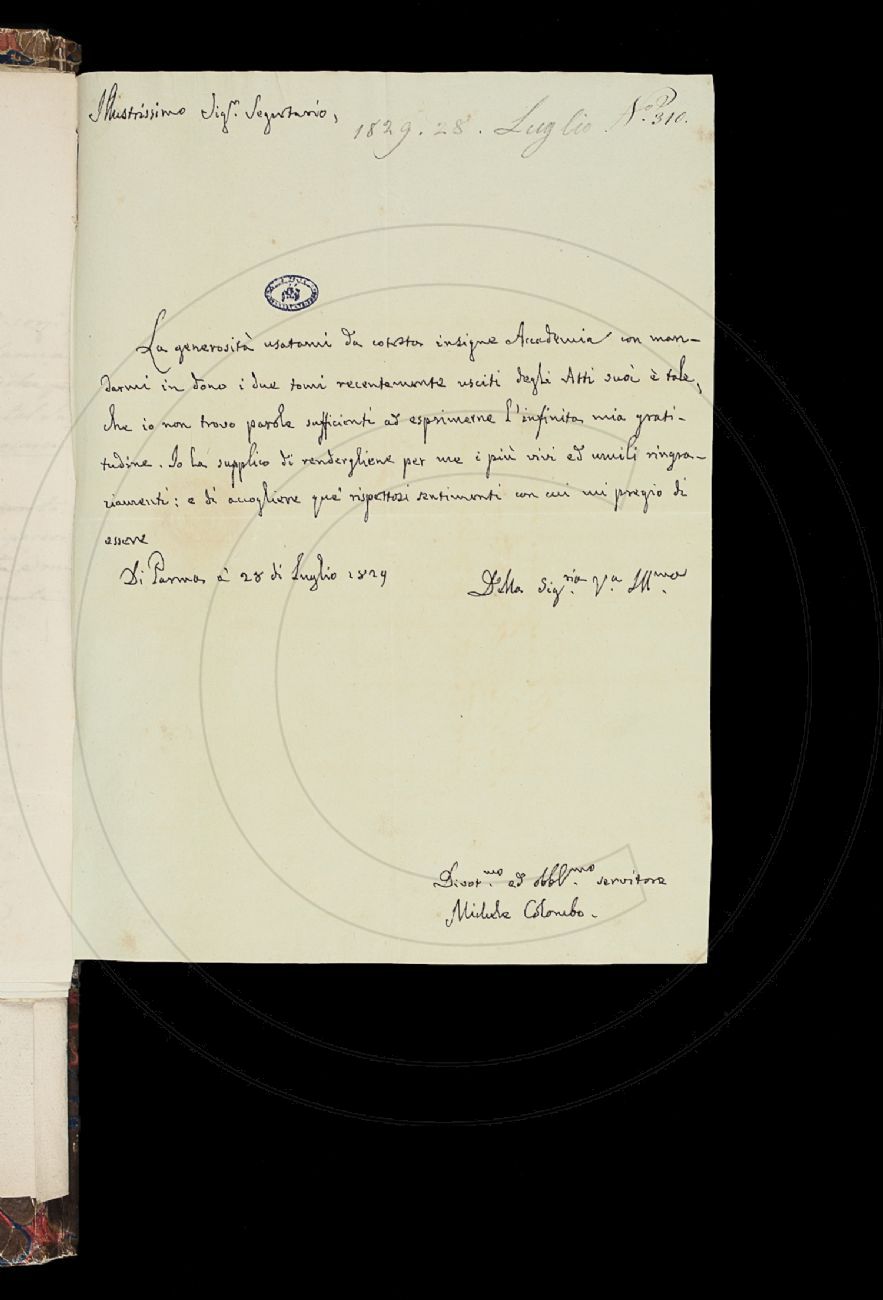 Illustrissimo Sigr. Segretario,
1829. 28. Luglio No. 310.
La generosità usatami da cotesta insigne Accademia con man-
darmi in dono i due tomi recentemente usciti degli Atti suoi è tale,
che io non trovo parole sufficienti ad esprimerne l'infinita mia grati-
tudine. Io la supplico di rendergliene per me i più vivi ed umili ringra-
ziamenti; e di accogliere que' rispettosi sentimenti con cui mi pregio di
essere
Di Parma à 28 di Luglio 1829
Della Sigria. Va. Illma.
Divotmo. ed obblmo. servitore
Michele Colombo.